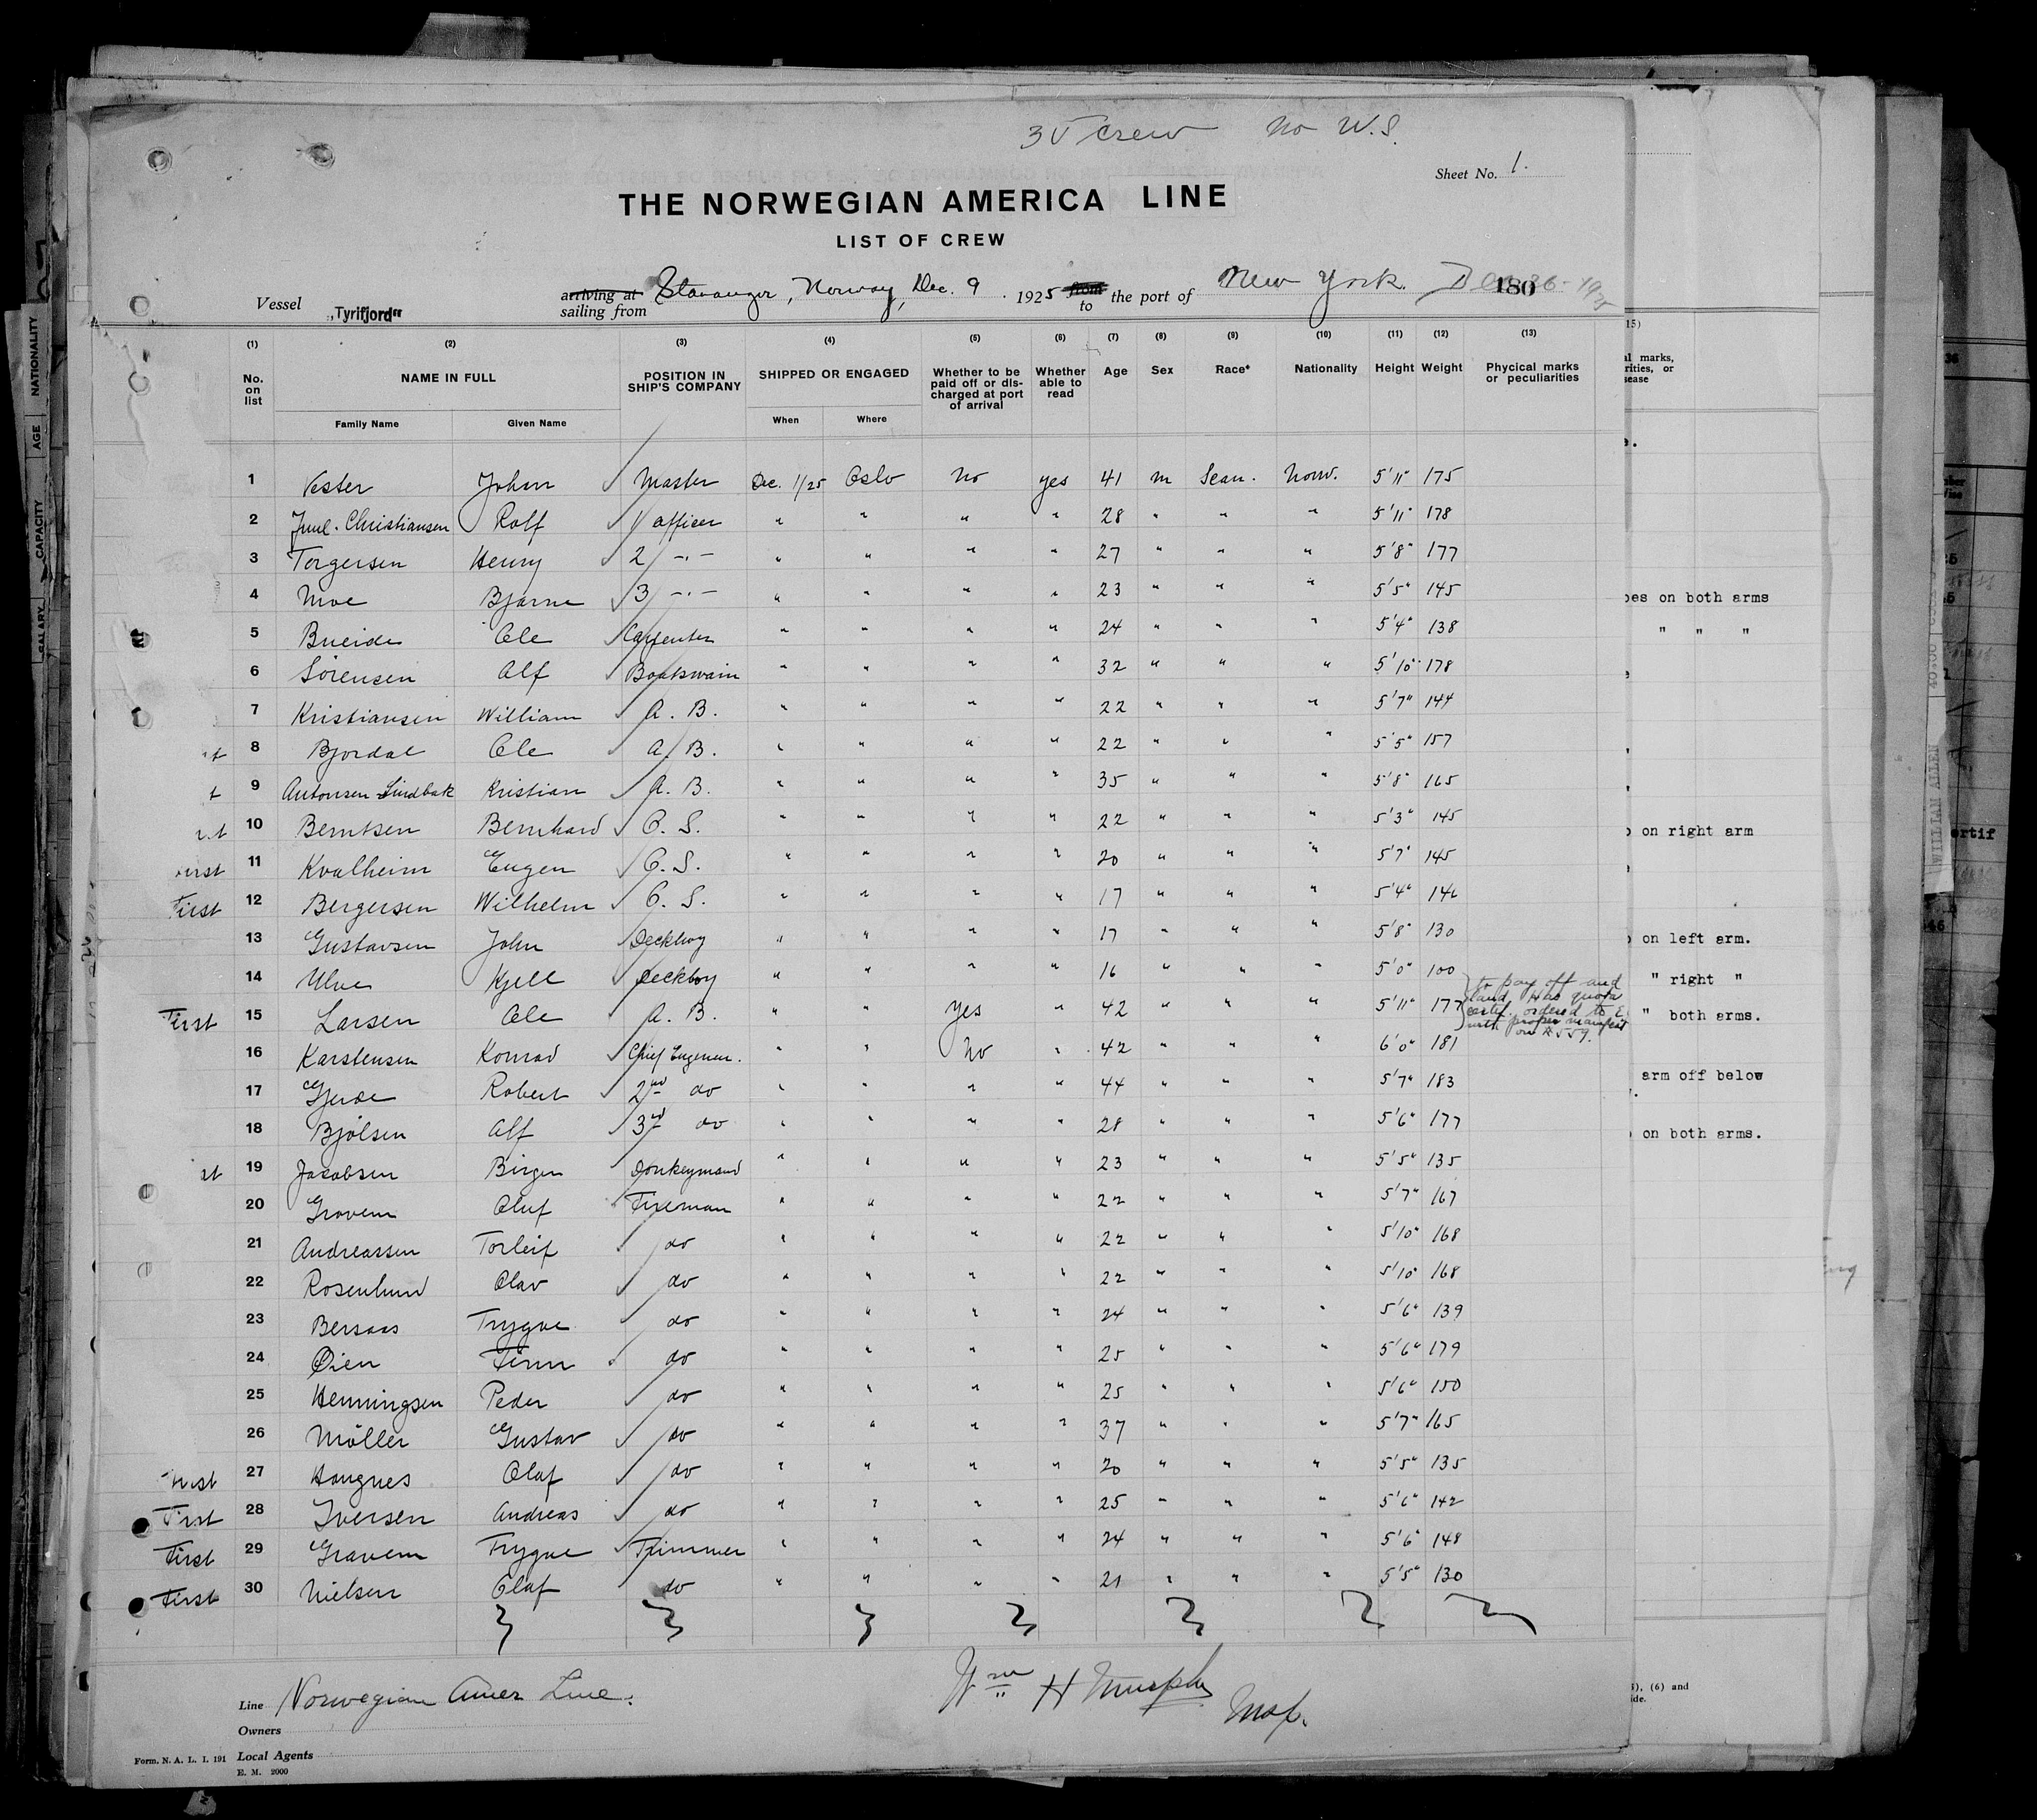 35 crew no W.S.
Sheet No. 1.
THE NORWEGIAN AMERICA LINE
LIST OF CREW
Vessel "Tyrifjord" arriving at sailing from Stavanger, Norway, Dec. 9. 1925 from to the port of New York. 180
(1) (2) (3) (4) (5) (6) (7) (8) (9) (10) (11) (12) (13)
No. on list NAME IN FULL POSITION IN SHIP'S COMPANY SHIPPED OR ENGAGED Whether to be paid off or discharged at port of arrival Whether able to read Age Sex Race* Nationality Height Weight Phycical marks or peculiarities
Family Name Given Name When Where
1 Vester Johan Master Dec. 1/25 Oslo No yes 41 m Scan. Norw. 5'11" 175
2 Juul-Christiansen Rolf 1/ officer " " " " 28 " " " 5'11" 178
3 Torgersen Henry 2/ -.- " " " " 27 " " " 5'8" 177
4 Moe Bjarne 3/ -.- " " " " 23 " " " 5'5" 145
5 Bueide Ole Carpenter " " " " 24 " " " 5'4" 138
6 Sörensen Alf Boatswain " " " " 32 " " " 5'10" 178
7 Kristiansen William A. B. " " " " 22 " " " 5'7" 144
8 Bjordal Ole A. B. " " " " 22 " " " 5'5" 157
9 Antonsen Lindbak Kristian A. B. " " " " 35 " " " 5'8" 165
10 Berntsen Bernhard O. S. " " " " 22 " " " 5'3" 145
11 Kvalheim Eugen O. S. " " " " 20 " " " 5'7" 145
First 12 Bergersen Wilhelm O. S. " " " " 17 " " " 5'4" 146
13 Gustavsen John Deckboy " " " " 17 " " " 5'8" 130
14 Ulve Kjell Deckboy " " " " 16 " " " 5'0" 100
First 15 Larsen Ole A. B. " " yes " 42 " " " 5'11" 177 to pay off and land. Has quota certif. ordered to E. with proper manifest on
16 Karstensen Konrad Chief Engineer. " " No " 42 " " " 6'0" 181
17 Gjerde Robert 2nd do " " " " 44 " " " 5'7" 183
18 Bjölsen Alf 3rd do " " " " 28 " " " 5'6" 177
19 Jacobsen Birger Donkeymand " " " " 23 " " " 5'5" 135
20 Gravem Oluf Fireman " " " " 22 " " " 5'7" 167
21 Andreassen Torleif do " " " " 22 " " " 5'10" 168
22 Rosenlund Olav do " " " " 22 " " " 5'10" 168
23 Bersaas Trygve do " " " " 24 " " " 5'6" 139
24 Øien Finn do " " " " 25 " " " 5'6" 179
25 Henningsen Peder do " " " " 25 " " " 5'6" 150
26 Möller Gustav do " " " " 37 " " " 5'7" 165
27 Haugnes Olaf do " " " " 20 " " " 5'5" 135
First 28 Iversen Andreas do " " " " 25 " " " 5'6" 142
First 29 Gravem Trygve Trimmer " " " " 24 " " " 5'6" 148
First 30 Nielsen Olaf do " " " " 21 " " " 5'5" 130
Line Norwegian Amer Line.
Wm H Murphy
Owners
Local Agents
Form. N. A. L. I. 191
E. M. 2000
NATIONALITY
AGE
CAPACITY
SALARY
15)
marks,
rities, or
on both arms
" " "
on right arm
on left arm.
" right "
" both arms.
arm off below
on both arms.
(6) and
WILLIAM ALLEN